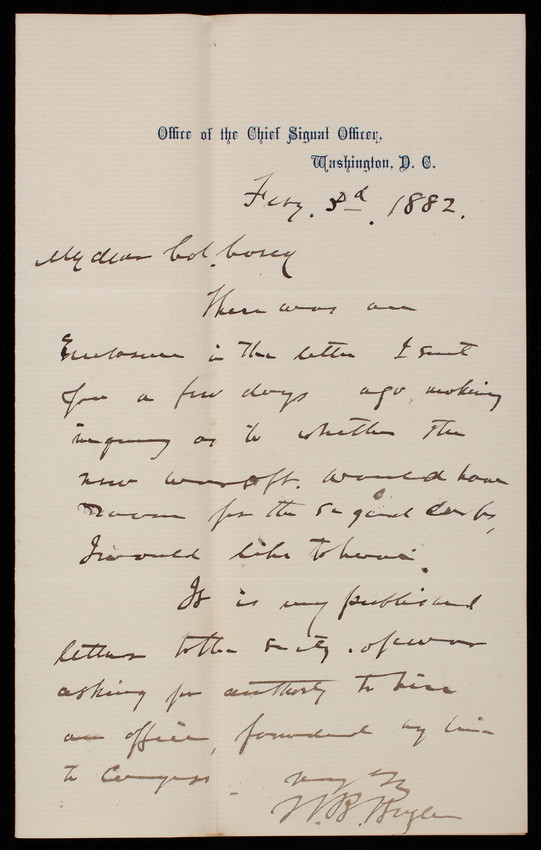 Office of the Chief Signal Officer,
Washington, D. C.
Feby. 3d. 1882.
My dear Col. Casey
There was an
Enclosure in the letter I sent
you a few days ago, making
inquiry as to whether the
new war Dpt. would have
Room for the Signal Corps,
I would like to have.
It is my published
letters to the Secty. of war
asking for authority to hire
an office, forwarded by him
to Congress
W. B.